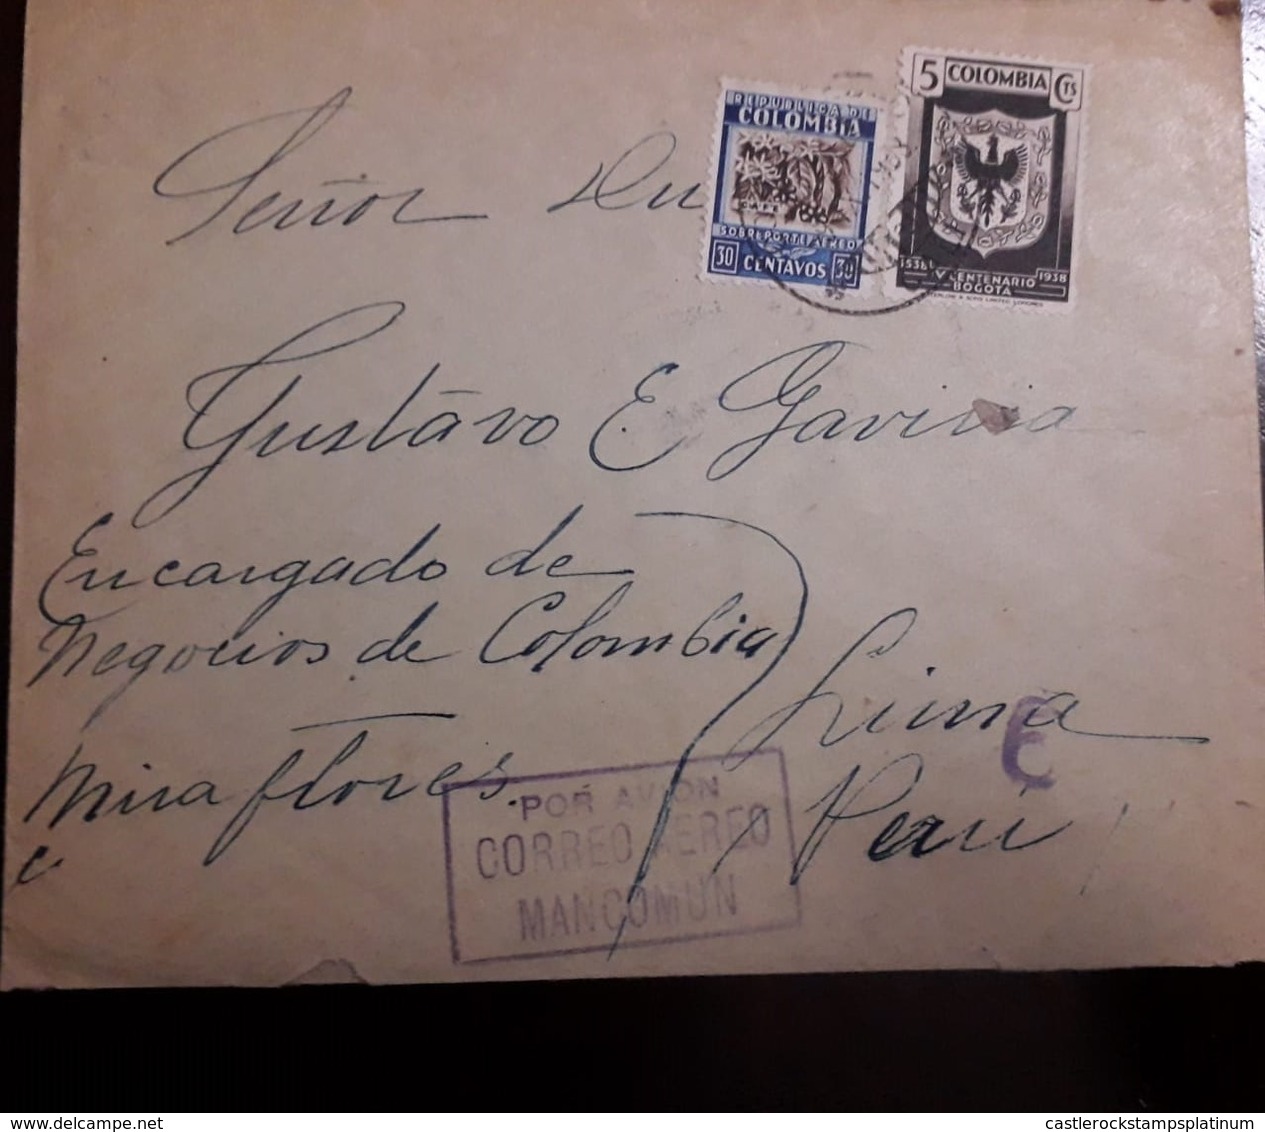 Señor
Gustavo E Gaviria
Encargado de
Negocios de Colombia
Miraflores.
Lima
Perú
REPUBLICA DE
COLOMBIA
CAFE
SOBREPORTE AEREO
30 CENTAVOS 30
5 COLOMBIA CTS
1538 1938
IV CENTENARIO
BOGOTA
POR AVION
CORREO AEREO
MANCOMUN
E
castlerockstampsplatinum